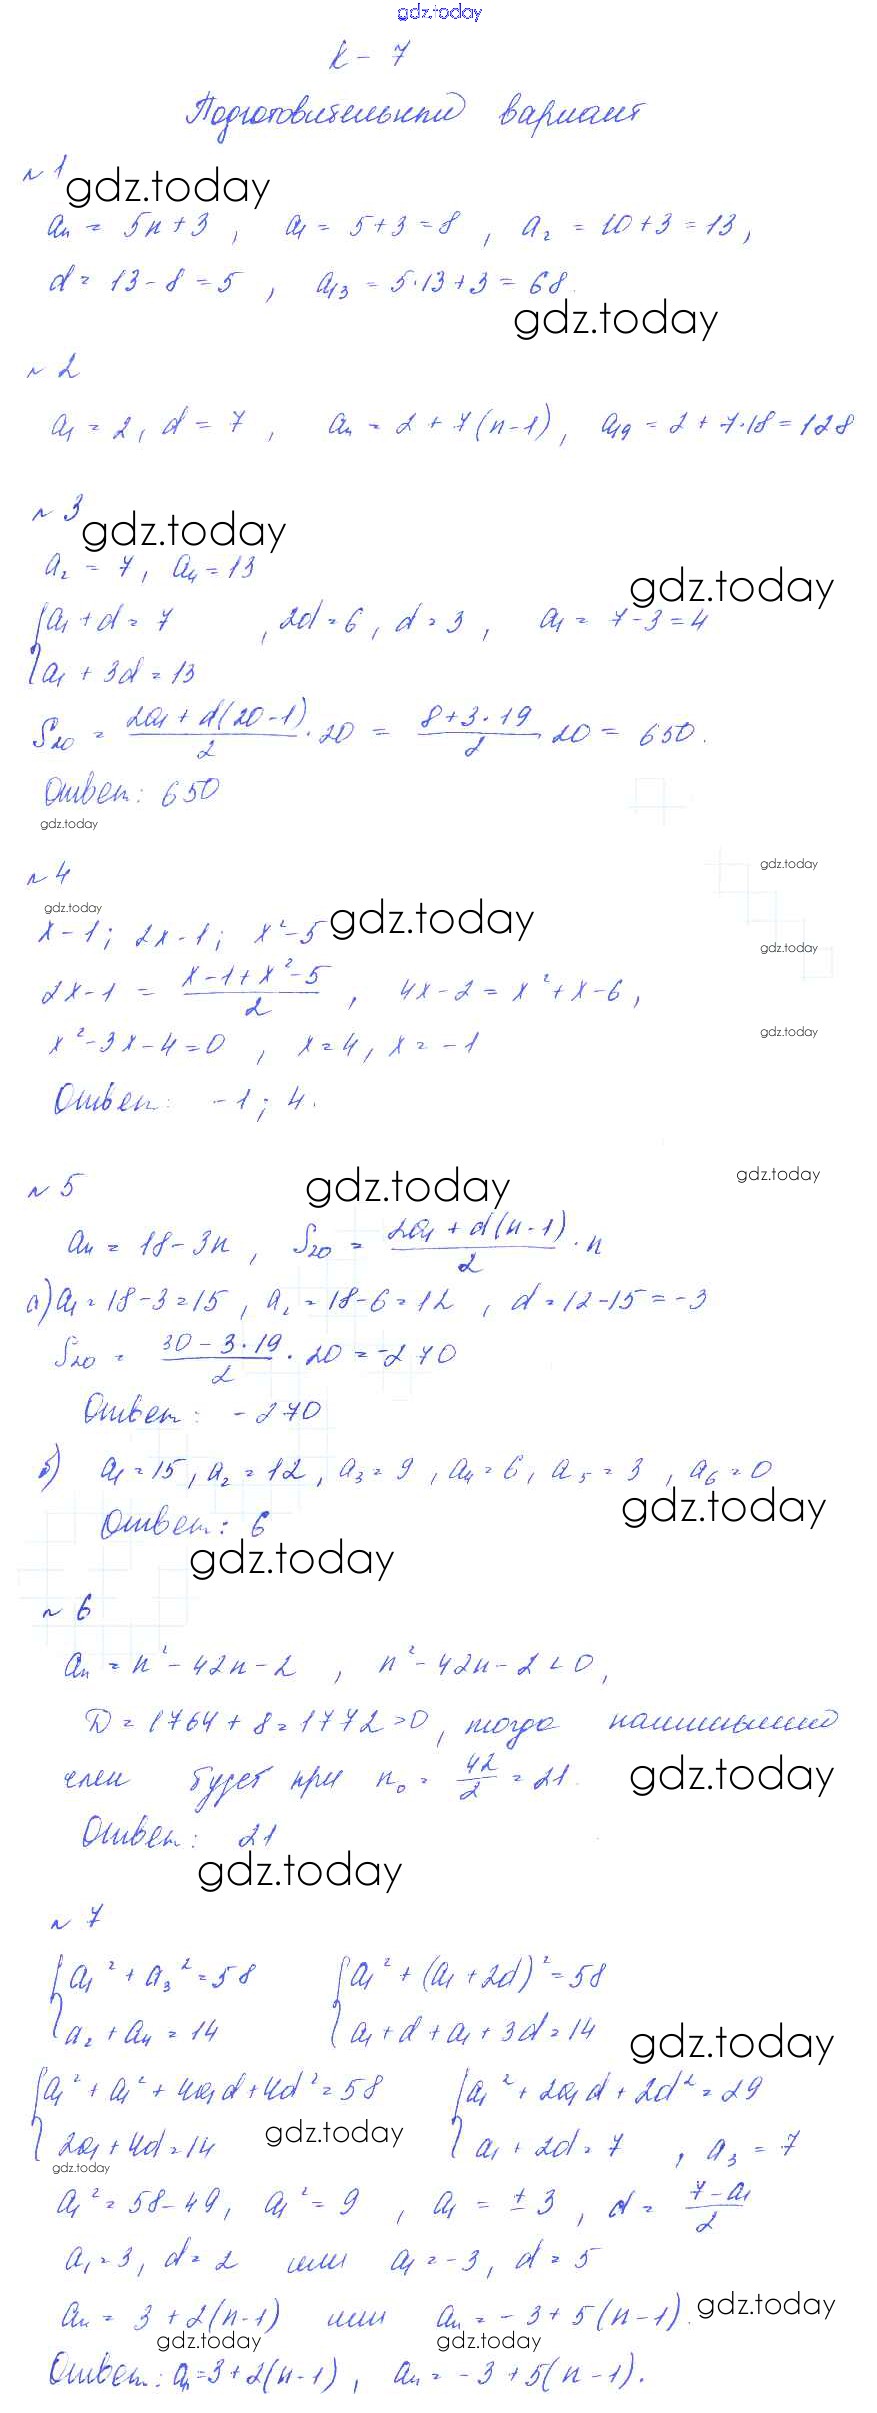 gdz.today
К - 7
Подготовительный вариант
№ 1
gdz.today
aₙ = 5n + 3, a₁ = 5 + 3 = 8, a₂ = 10 + 3 = 13,
d = 13 - 8 = 5, a₁₃ = 5·13 + 3 = 68.
gdz.today
№ 2
a₁ = 2, d = 7, aₙ = 2 + 7(n - 1), a₁₉ = 2 + 7·18 = 128
№ 3
gdz.today
a₂ = 7, a₄ = 13
gdz.today
{a₁ + d = 7, 2d = 6, d = 3, a₁ = 7 - 3 = 4
a₁ + 3d = 13
S₂₀ = (2a₁ + d(20 - 1))/2 · 20 = (8 + 3·19)/2 · 20 = 650.
Ответ: 650
gdz.today
gdz.today
№ 4
gdz.today
gdz.today
x - 1; 2x - 1; x² - 5
gdz.today
2x - 1 = (x - 1 + x² - 5)/2, 4x - 2 = x² + x - 6,
gdz.today
x² - 3x - 4 = 0, x = 4, x = -1
Ответ: -1; 4.
gdz.today
№ 5
gdz.today
aₙ = 18 - 3n, S₂₀ = (2a₁ + d(n - 1))/2 · n
а) a₁ = 18 - 3 = 15, a₂ = 18 - 6 = 12, d = 12 - 15 = -3
S₂₀ = (30 - 3·19)/2 · 20 = -270
Ответ: -270
б) a₁ = 15, a₂ = 12, a₃ = 9, a₄ = 6, a₅ = 3, a₆ = 0
gdz.today
Ответ: 6
gdz.today
№ 6
aₙ = n² - 42n - 2, n² - 42n - 2 < 0,
D = 1764 + 8 = 1772 > 0, тогда наименьший
член будет при n₀ = 42/2 = 21.
gdz.today
Ответ: 21
gdz.today
№ 7
{a₁² + a₃² = 58 {a₁² + (a₁ + 2d)² = 58
a₂ + a₄ = 14 a₁ + d + a₁ + 3d = 14
gdz.today
{a₁² + a₁² + 4a₁d + 4d² = 58 {a₁² + 2a₁d + 2d² = 29
gdz.today
2a₁ + 4d = 14 a₁ + 2d = 7, a₃ = 7
gdz.today
a₁² = 58 - 49, a₁² = 9, a₁ = ± 3, d = (7 - a₁)/2
a₁ = 3, d = 2 или a₁ = -3, d = 5
aₙ = 3 + 2(n - 1) или aₙ = -3 + 5(n - 1).
gdz.today
gdz.today
gdz.today
Ответ: aₙ = 3 + 2(n - 1), aₙ = -3 + 5(n - 1).